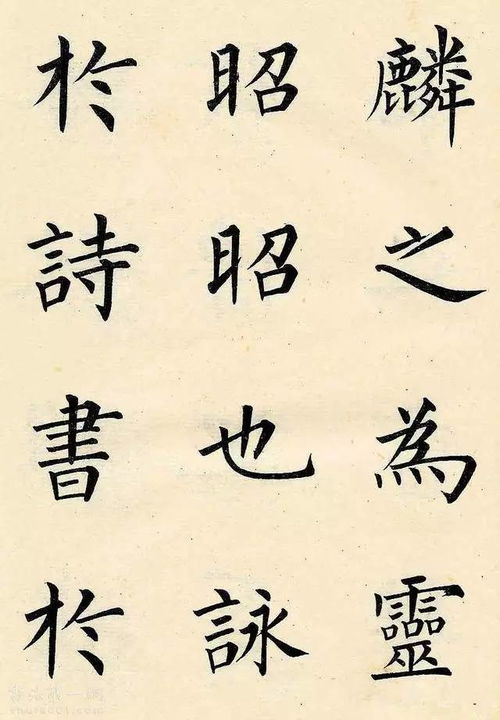 麟之為靈
昭昭也詠
於詩書於